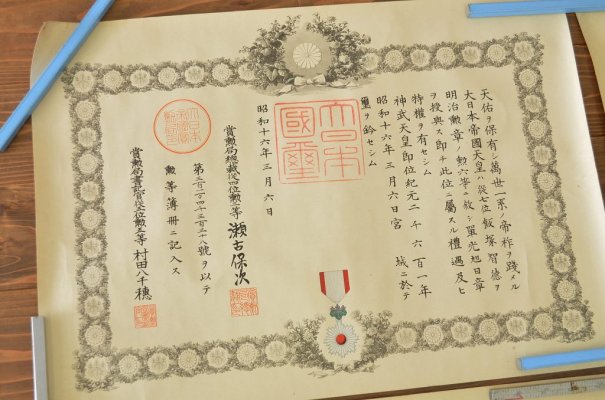 天佑ヲ保有シ萬世一系ノ帝祚ヲ踐メル
大日本帝國天皇ハ從七位飯塚智德ヲ
明治勳章ノ勳六等ニ敍シ單光旭日章
ヲ授與ス即チ此位ニ屬スル禮遇及ヒ
特權ヲ有セシム
神武天皇即位紀元二千六百一年
昭和十六年三月六日宮城ニ於テ
璽ヲ鈐セシム
大日本國璽
昭和十六年三月六日
賞勳局總裁從三位勳二等瀨古保次
第三百二十四萬三千三百二十八號ヲ以テ
勳等簿冊ニ記入ス
賞勳局書記官從五位勳五等村田八千穗